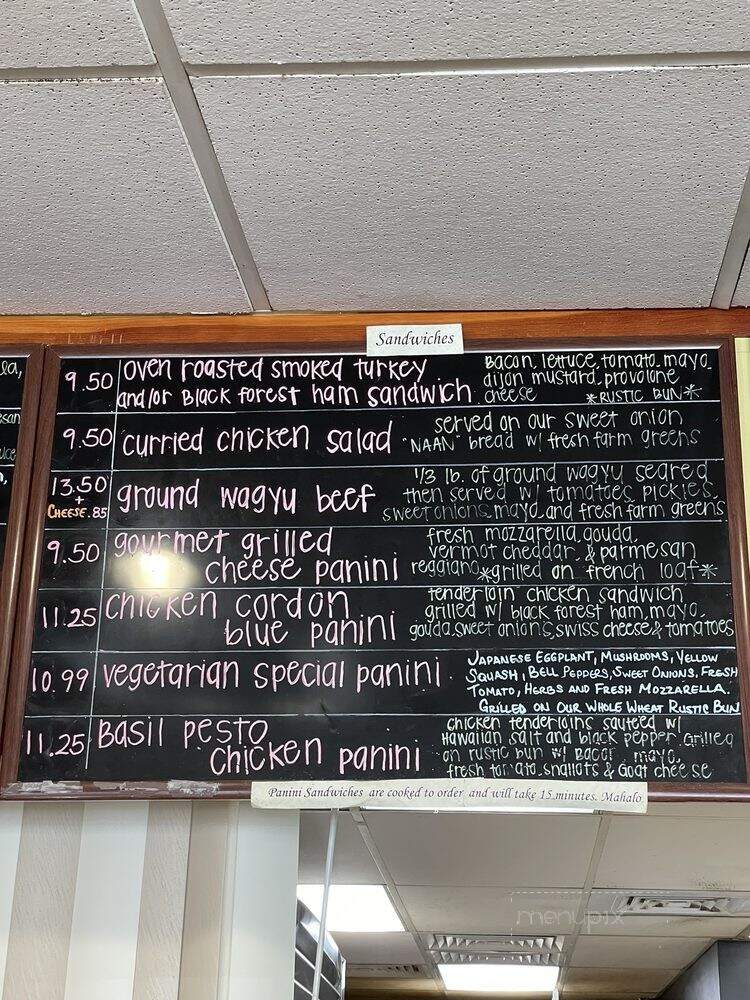 Sandwiches
9.50 oven roasted smoked turkey
and/or Black forest ham sandwich
Bacon, lettuce, tomato, mayo,
dijon mustard, provolone
cheese *RUSTIC BUN*
9.50 curried chicken salad
served on our sweet onion
"NAAN" bread w/ fresh farm greens
13.50
+
CHEESE .85
ground wagyu beef
1/3 lb. of ground wagyu seared
then served w/ tomatoes, pickles,
sweet onions, mayo, and fresh farm greens
9.50 gourmet grilled
cheese panini
fresh mozzarella, gouda,
vermot cheddar, & parmesan
reggiano *grilled on french loaf*
11.25 chicken cordon
blue panini
tenderloin chicken sandwich
grilled w/ black forest ham, mayo,
gouda, sweet onions, swiss cheese & tomatoes
10.99 vegetarian special panini
JAPANESE EGGPLANT, MUSHROOMS, YELLOW
SQUASH, BELL PEPPERS, SWEET ONIONS, FRESH
TOMATO, HERBS AND FRESH MOZZARELLA.
GRILLED ON OUR WHOLE WHEAT RUSTIC BUN
11.25 Basil pesto
chicken panini
chicken tenderloins sauteed w/
Hawaiian salt and black pepper Grilled
on rustic bun w/ Bacon, mayo,
fresh tomato, shallots & Goat cheese
Panini Sandwiches are cooked to order and will take 15 minutes. Mahalo
menupix